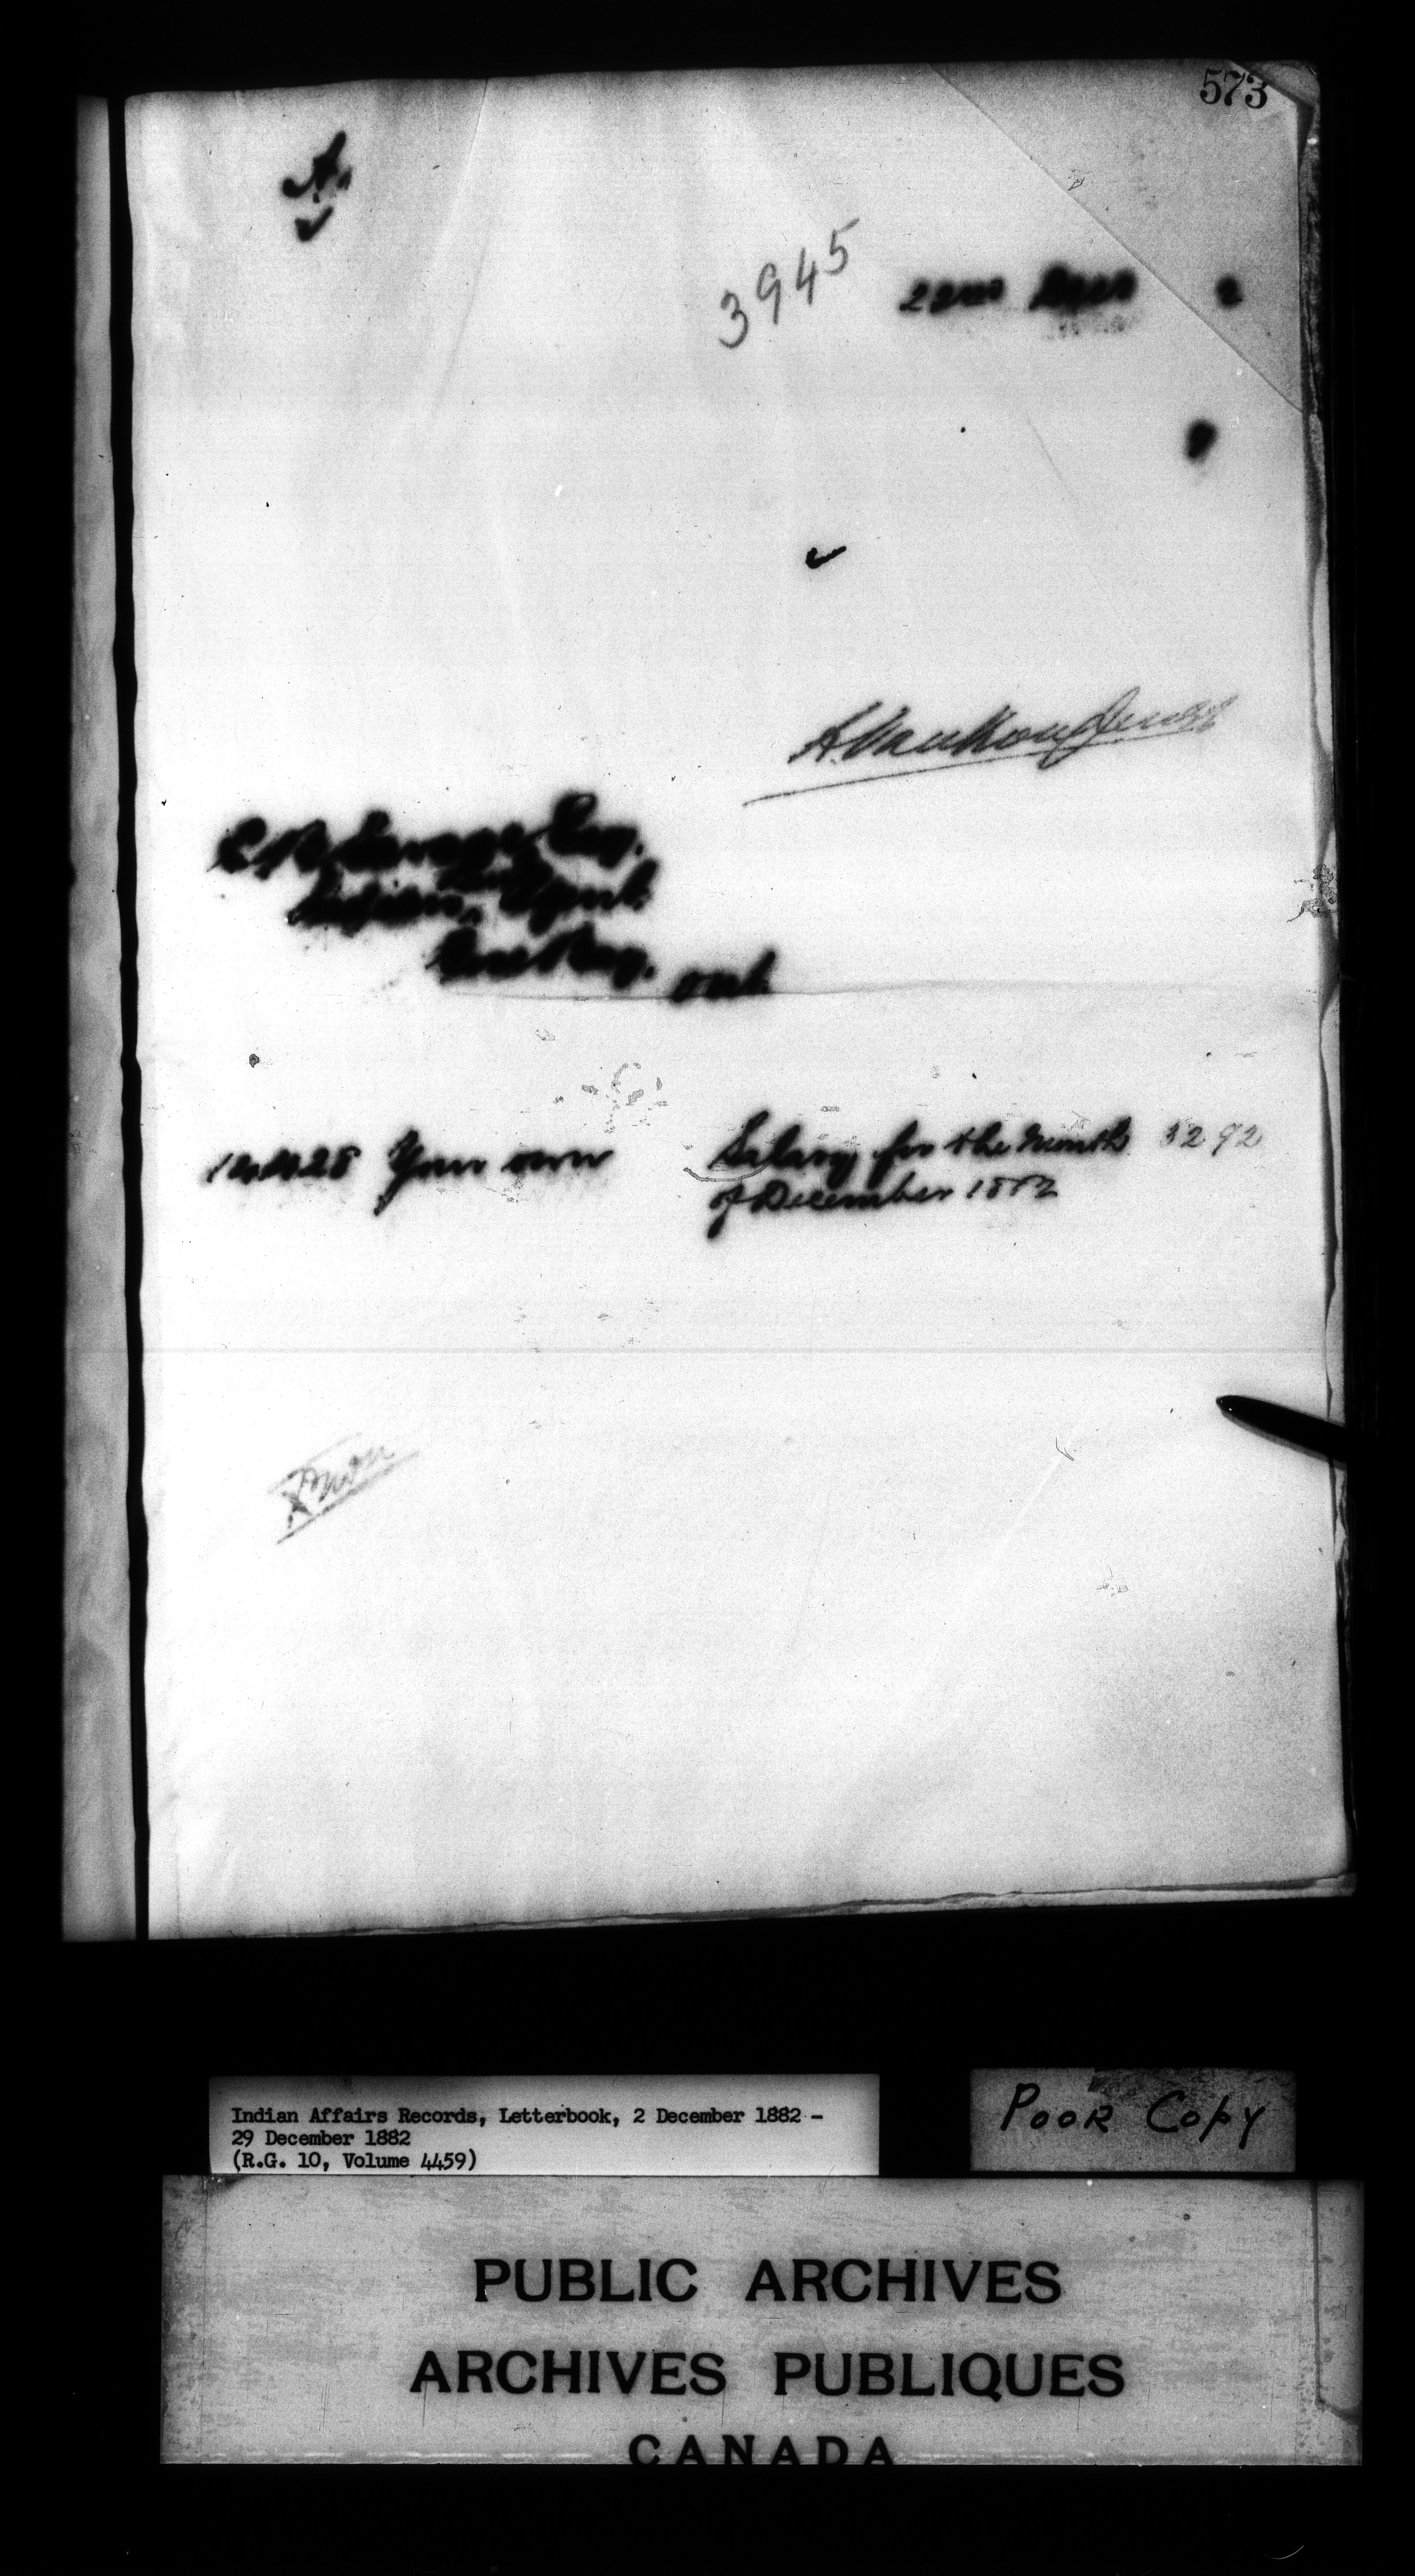 573
A.
3945 22nd Decr 2
A. Vankoughnet
Esq.
Indian Agent
Gore Bay, Ont
Your own Salary for the Month 32 92
of December 1882
Indian Affairs Records, Letterbook, 2 December 1882 -
29 December 1882
(R.G. 10, Volume 4459)
POOR COPY
PUBLIC ARCHIVES
ARCHIVES PUBLIQUES
CANADA